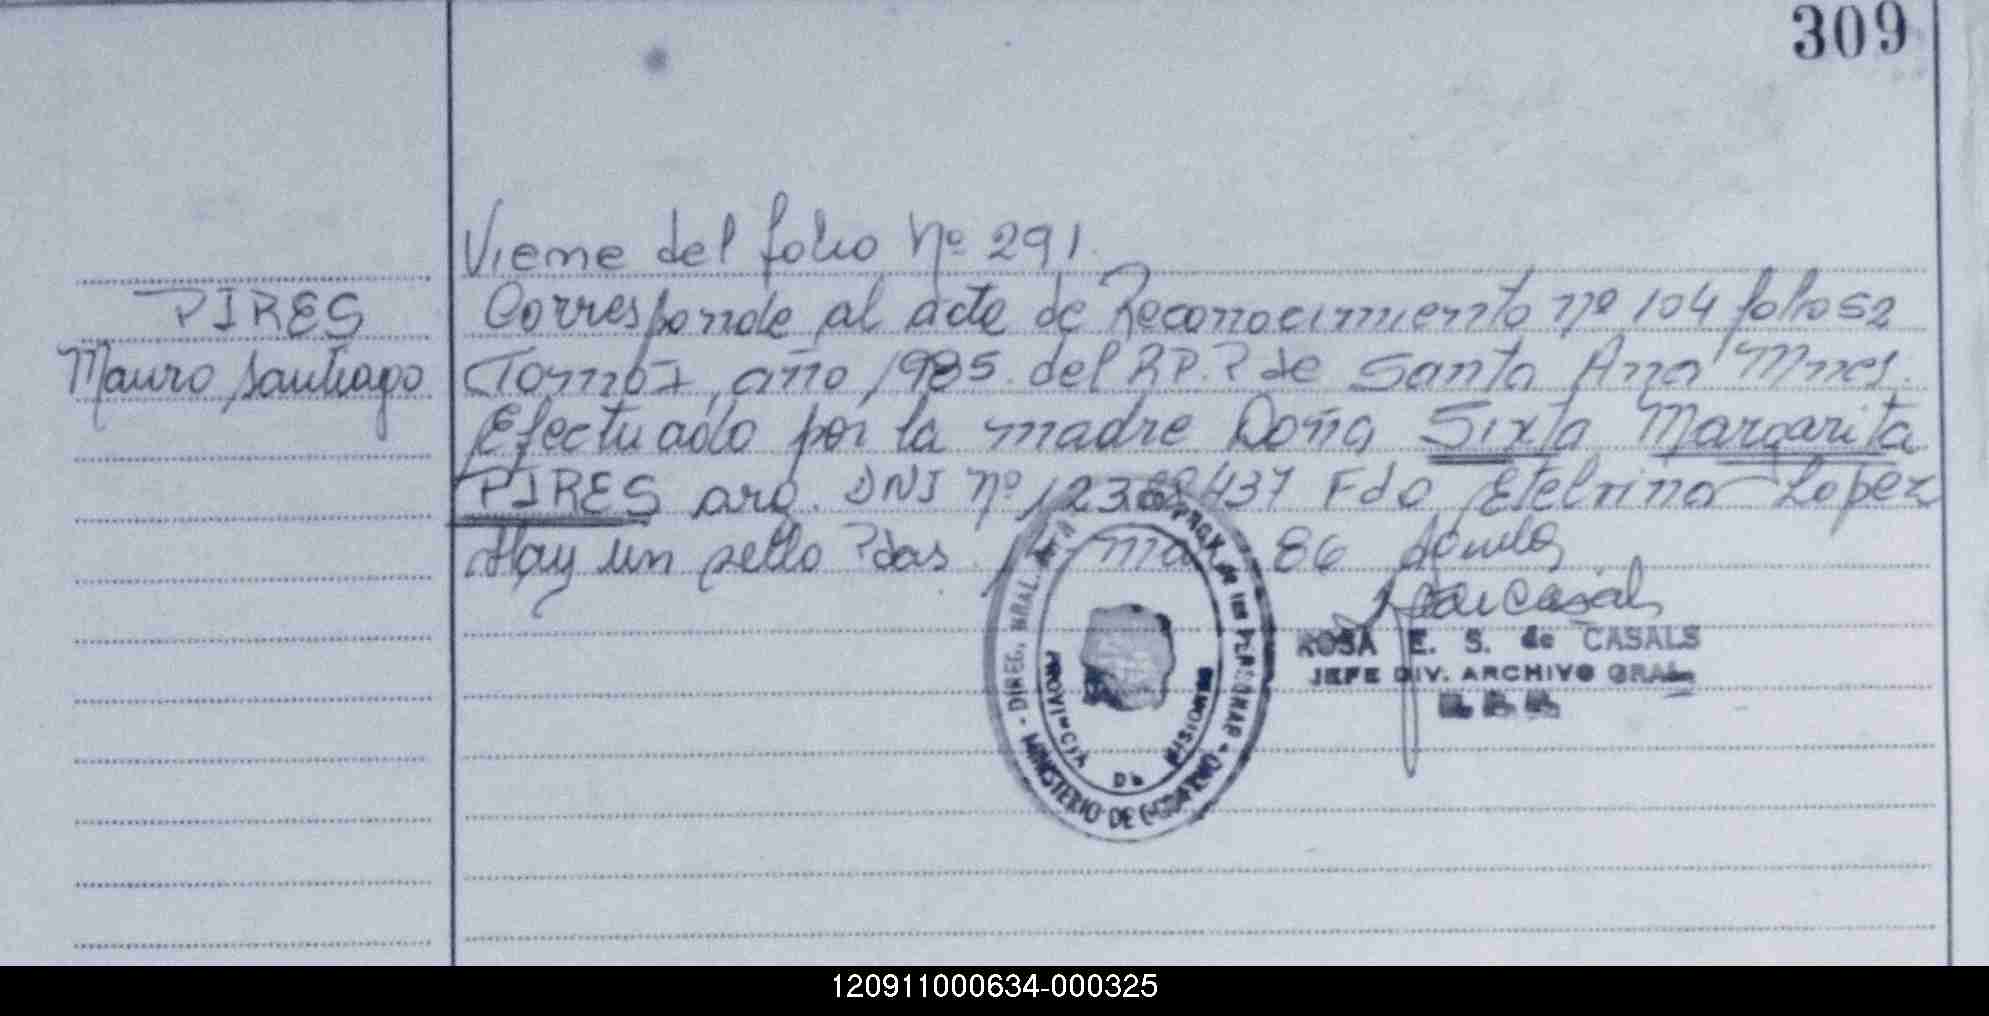 309
Viene del folio Nº 291.
PIRES
Corresponde al acta de Reconocimiento nº 104 folio 52
Mauro Santiago
Tomo I, año 1985. del R.P.P de Santa Ana Mnes.
Efectuado por la madre Doña Sixta Margarita
PIRES arg. DNI nº 12368437 Fdo Etelvina Lopez
Hay un sello Pdas 86
ROSA E. S. de CASALS
JEFE DIV. ARCHIVO GRAL
DIREC. GRAL. de las PERSONAS
MINISTERIO DE GOBIERNO
PROVINCIA DE MISIONES
120911000634-000325